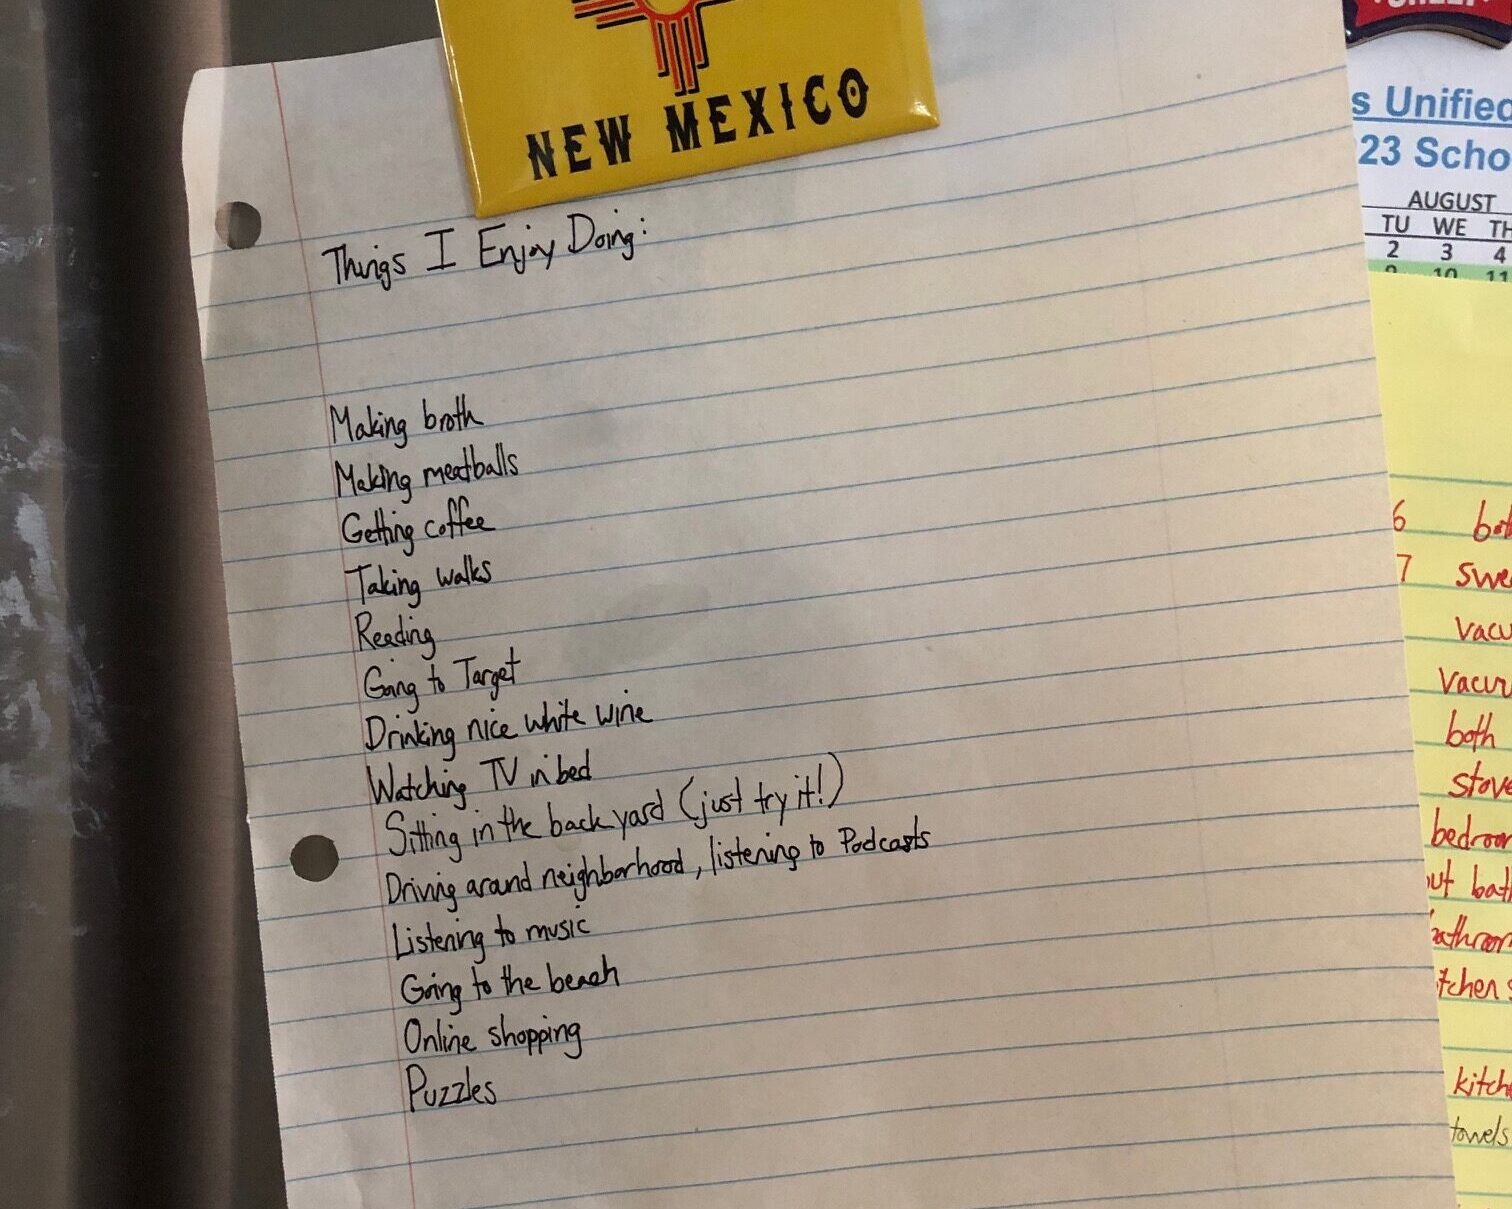 NEW MEXICO
Things I Enjoy Doing:
Making broth
Making meatballs
Getting coffee
Taking walks
Reading
Going to Target
Drinking nice white wine
Watching TV in bed
Sitting in the back yard (just try it!)
Driving around neighborhood, listening to Podcasts
Listening to music
Going to the beach
Online shopping
Puzzles
s Unified
23 Scho
AUGUST
TU WE TH
2 3 4
9 10 11
6
7 swe
vacu
both
stove
bedroom
ut bath
bathroom
tchen s
kitch
towels